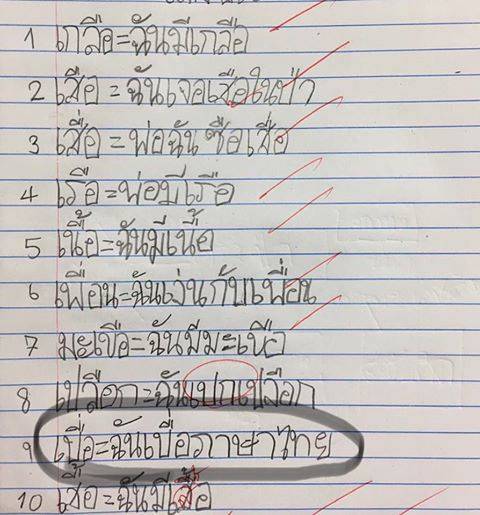 1 เกลือ=ฉันมีเกลือ
2 เสือ = ฉันเจอเสือในป่า
3 เสื่อ = พ่อฉันซือเสื่อ
4 เรือ=พ่อมีเรือ
5 เนื้อ=ฉันมีเนื้อ
6 เพื่อน=ฉันเว่นกับเพื่อน
7 มะเขือ=ฉันมีมะเขือ
8 เปลือก=ฉันแปกเปลือก
9 เบื่อ=ฉันเบื่อภาษาไทย
10 เสื้อ=ฉันมีเสื้อ